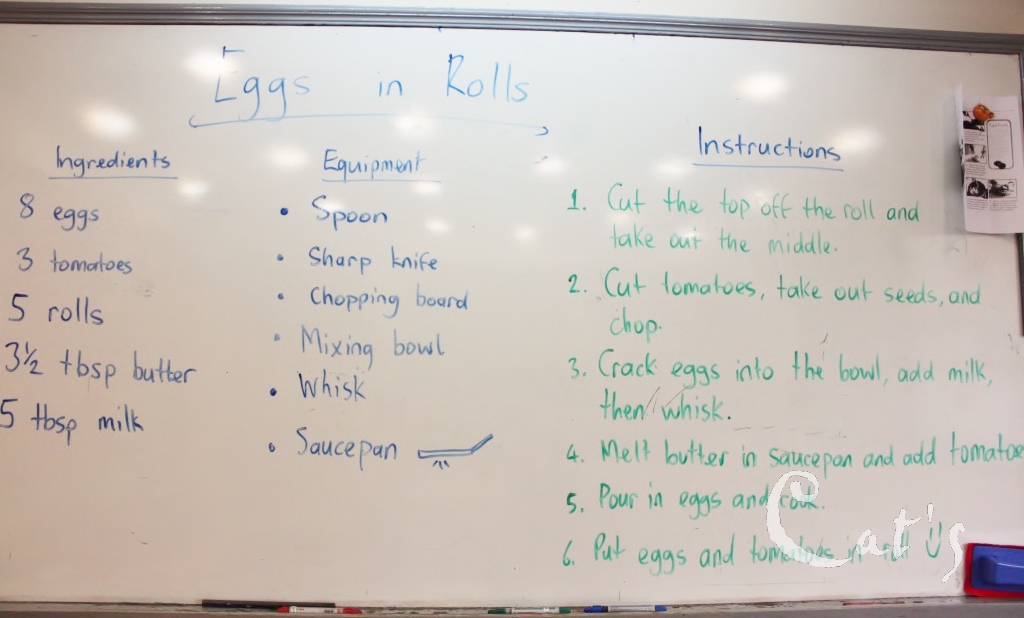 Eggs in Rolls
Ingredients
8 eggs
3 tomatoes
5 rolls
3½ tbsp butter
5 tbsp milk
Equipment
• Spoon
• Sharp knife
• Chopping board
• Mixing bowl
• Whisk
• Saucepan
Instructions
1. Cut the top off the roll and
take out the middle.
2. Cut tomatoes, take out seeds, and
chop.
3. Crack eggs into the bowl, add milk,
then whisk.
4. Melt butter in saucepan and add tomatoe
5. Pour in eggs and cook.
6. Put eggs and tomatoes in roll
Cat's